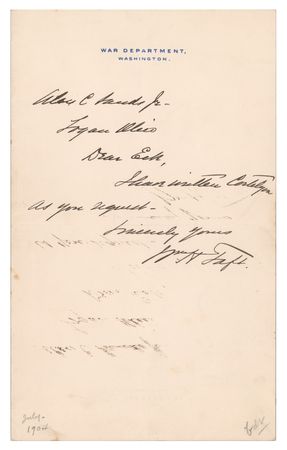 WAR DEPARTMENT,
WASHINGTON.
Alex C. Sands Jr -
Logan Ohio
Dear Eck,
I have written Cortelyou
as you request -
Sincerely yours
Wm H Taft.
July -
1904